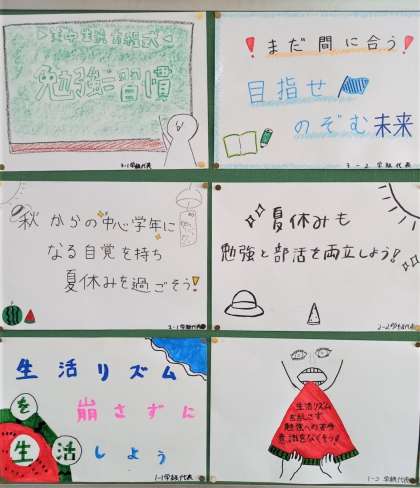 勉強=習慣
3-1学級代表
まだ間に合う
目指せ
のぞむ未来
3-2 学級代表
秋からの中心学年に
なる自覚を持ち
夏休みを過ごそう!
2-1学級代表
夏休みも
勉強と部活を両立しよう!
2-2学級代表
生活リズム
を崩さずに
生活しよう
1-1学級代表
生活リズム
勉強への苦手
意識をなくそう!
1-2 学級代表